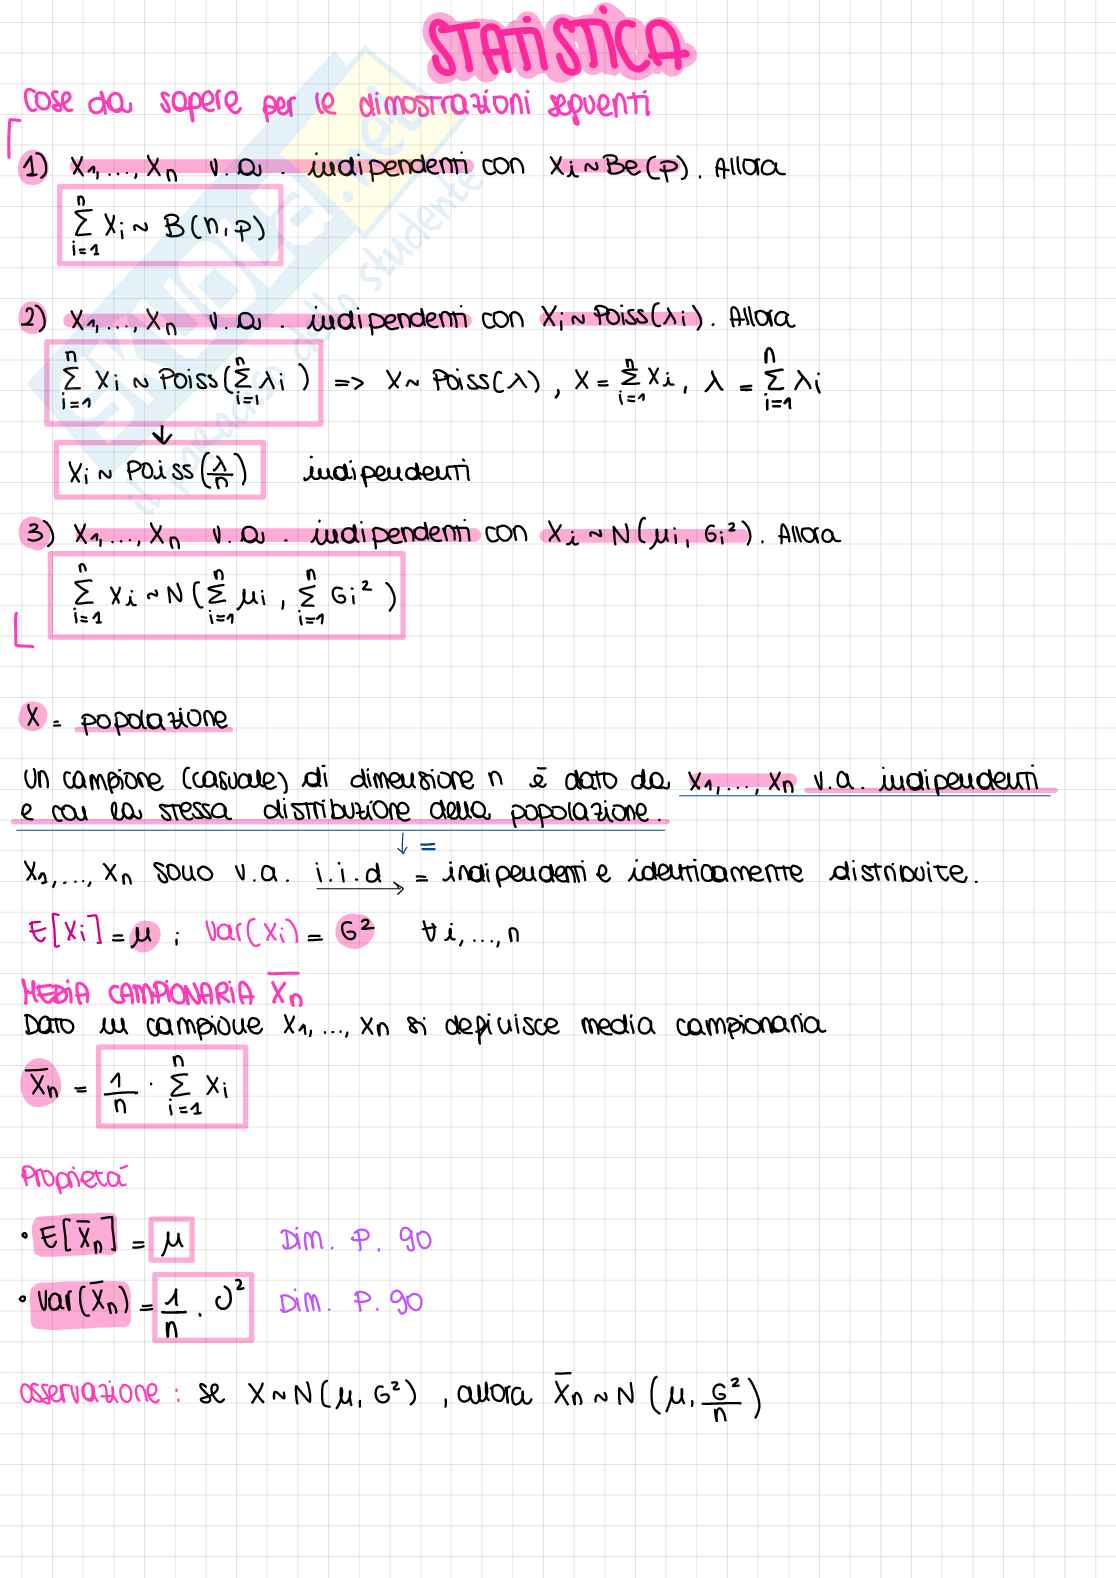 STATISTICA
cose da sapere per le dimostrazioni seguenti
1) X₁,..., Xₙ v.a. indipendenti con Xᵢ ~ Be(p). Allora
∑ᵢ₌₁ⁿ Xᵢ ~ B(n,p)
2) X₁,..., Xₙ v.a. indipendenti con Xᵢ ~ Poiss(λᵢ). Allora
∑ᵢ₌₁ⁿ Xᵢ ~ Poiss(∑ᵢ₌₁ⁿ λᵢ) => X ~ Poiss(λ), X = ∑ᵢ₌₁ⁿ Xᵢ, λ = ∑ᵢ₌₁ⁿ λᵢ
↓
Xᵢ ~ Poiss(λ/n) indipendenti
3) X₁,..., Xₙ v.a. indipendenti con Xᵢ ~ N(μᵢ, σᵢ²). Allora
∑ᵢ₌₁ⁿ Xᵢ ~ N(∑ᵢ₌₁ⁿ μᵢ, ∑ᵢ₌₁ⁿ σᵢ²)
X = popolazione
Un campione (casuale) di dimensione n è dato da X₁,..., Xₙ v.a. indipendenti
e con la stessa distribuzione della popolazione.
↓ =
X₁,..., Xₙ sono v.a. i.i.d → = indipendenti e identicamente distribuite.
E[Xᵢ] = μ ; Var(Xᵢ) = σ² ∀ i,..., n
MEDIA CAMPIONARIA X̅ₙ
Dato un campione X₁,..., Xₙ si definisce media campionaria
X̅ₙ = 1/n · ∑ᵢ₌₁ⁿ Xᵢ
Proprietà
• E[X̅ₙ] = μ Dim. P. 90
• Var(X̅ₙ) = 1/n · σ² Dim. P. 90
osservazione: se X ~ N(μ, σ²), allora X̅ₙ ~ N(μ, σ²/n)
SKUOLA.net
il paradiso dello studente